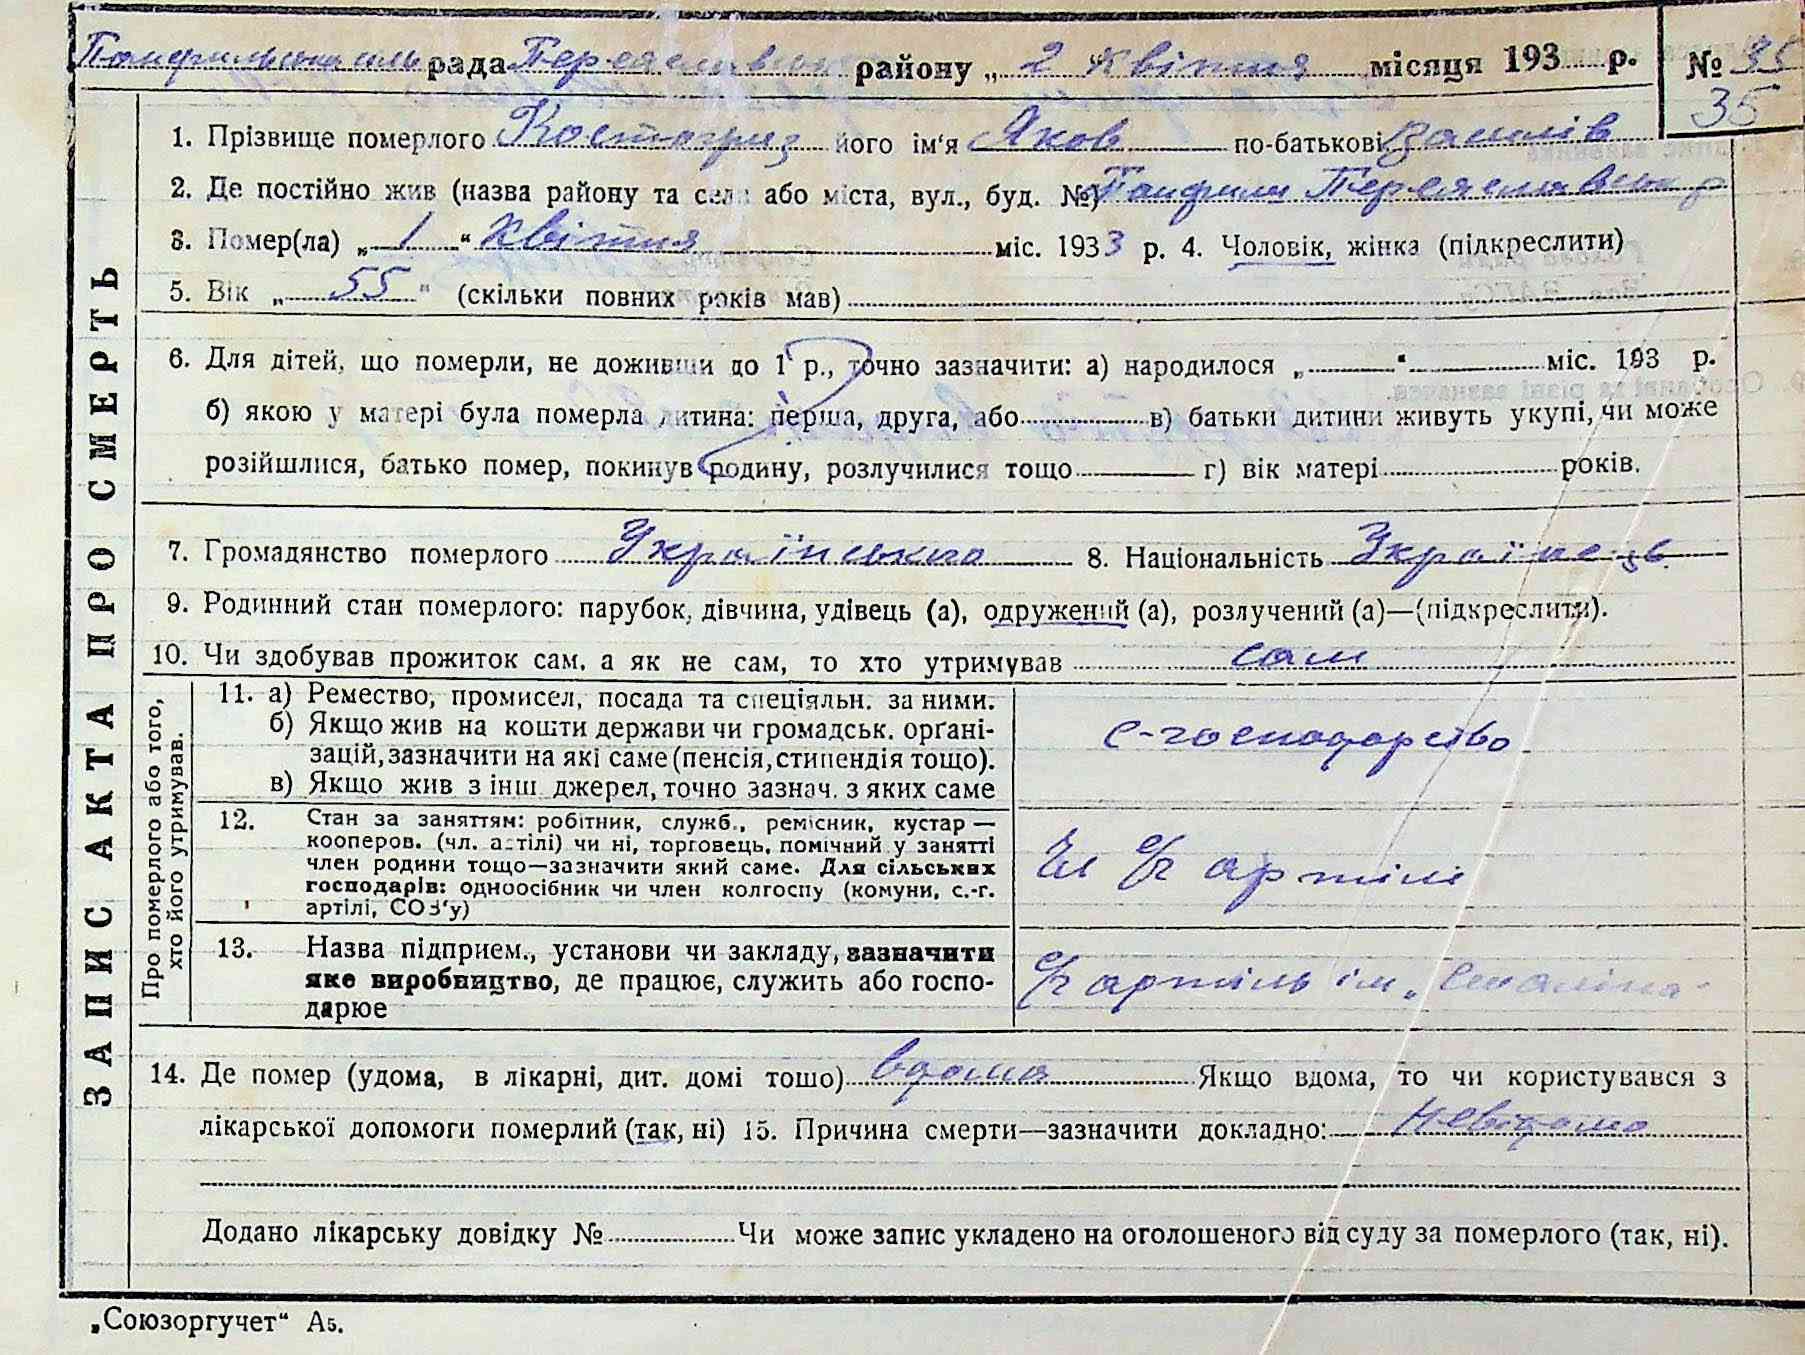 Панфильська сільрада Переяславськ району „ 2 " квітня місяця 193 р. № 35
35
ЗАПИС АКТА ПРО СМЕРТЬ
1. Прізвище померлого Костогриз його ім'я Яков по-батькові
2. Де постійно жив (назва району та села або міста, вул., буд. №) Панфили Переяславськ р
3. Помер(ла) „ 1 " квітня міс. 1933 р. 4. Чоловік, жінка (підкреслити)
5. Вік „ 55 " (скільки повних років мав)
6. Для дітей, що померли, не доживши до 1 р., точно зазначити: а) народилося „ " міс. 193 р.
б) якою у матері була померла дитина: перша, друга, або в) батьки дитини живуть укупі, чи може
розійшлися, батько помер, покинув родину, розлучилися тощо г) вік матері років.
7. Громадянство померлого Українське 8. Національність Українець
9. Родинний стан померлого: парубок, дівчина, удівець (а), одружений (а), розлучений (а)—(підкреслити).
10. Чи здобував прожиток сам, а як не сам, то хто утримував сам
Про померлого або того,
хто його утримував.
11. а) Ремество, промисел, посада та спеціяльн. за ними.
б) Якщо жив на кошти держави чи громадськ. орґані-
зацій, зазначити на які саме (пенсія, стипендія тощо).
в) Якщо жив з інш. джерел, точно зазнач. з яких саме
с-господарство
12. Стан за заняттям: робітник, служб., ремісник, кустар —
кооперов. (чл. артілі) чи ні, торговець, помічний у занятті
член родини тощо—зазначити який саме. Для сільських
господарів: одноосібник чи член колгоспу (комуни, с.-г.
артілі, СОЗ'у)
Чл с/г артілі
13. Назва підприєм., установи чи закладу, зазначити
яке виробництво, де працює, служить або госпо-
дарює
с/г артіль ім „Сталіна"
14. Де помер (удома, в лікарні, дит. домі тощо) вдома Якщо вдома, то чи користувався з
лікарської допомоги померлий (так, ні) 15. Причина смерти—зазначити докладно: Невідомо
Додано лікарську довідку № Чи може запис укладено на оголошеного від суду за померлого (так, ні).
„Союзоргучет" А5.